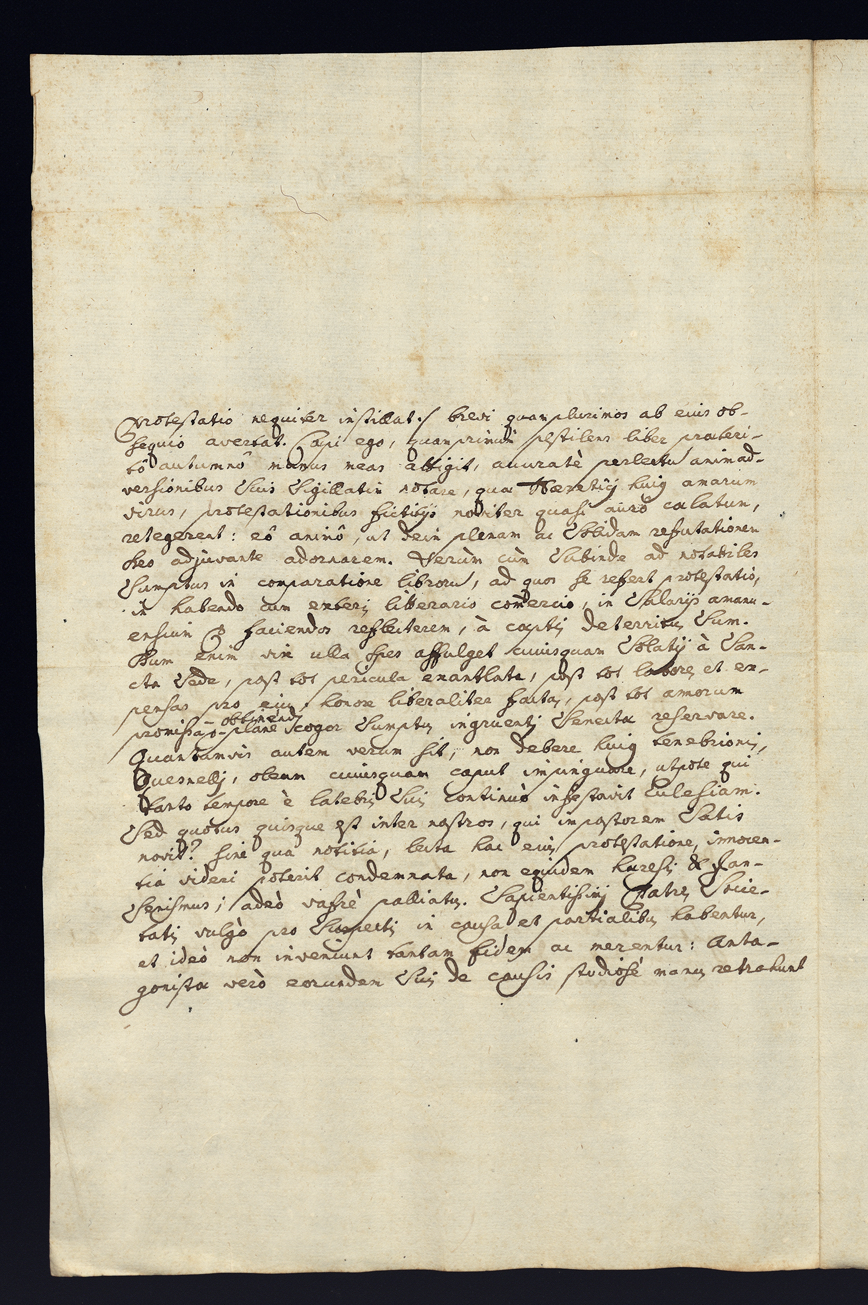 Protestatio nequiter instillat :/ brevi quamplurimos ab eius ob-
sequio avertat. Cæpi ego, quamprimùm pestilens liber præteri-
tô autumnô manus meas attigit, accuratè perlectu animad-
versionibus suis sigillatim notare, quæ Hæretici huius amarum
virus, protestationibus fictitijs noviter quasi aurô cælatum,
retegerent: eô animô, ut dein plenam ac solidam refutationem
Deo adjuvante adornarem. Verùm cùm subinde ad notabiles
sumptus in comparatione librorum, ad quos se refert protestatio,
in habendo cum exteris litterario commercio, in salarijs amanu-
ensium faciendos reflecterem, à cæptis deterritus sum.
Dum enim vix ulla spes affulget cuiusquam solatij à San-
cta Sede, post tot pericula exantlata, post tot labores et ex-
pensas pro eius honore liberaliter factas, post tot amorum
promissa, obtinendi planè cogor sumptus ingruenti senectæ reservare.
Quantumvis autem verum sit, non debere huius tenebrionis,
Quesnelli, oleum cuiusquam caput impinguare, utpote qui
tanto tempore è latebris suis continuò infestavit Ecclesiam.
Sed quotus quisque est inter nostros, qui impostorem satis
novit? sine qua notitia, lecta hac eius protestatione, innocen-
tia videri poterit condemnata, non equidem hæresis & Jan-
senismus; adeò vafrè palliatus. Sapientissimi Patres Socie-
tatis vulgò pro suspectis in causa et partialibus habentur,
et ideò non inveniunt tantam fidem ac merentur: Anta-
gonistæ verò eorundem suis de causis studiosè manus retrahunt